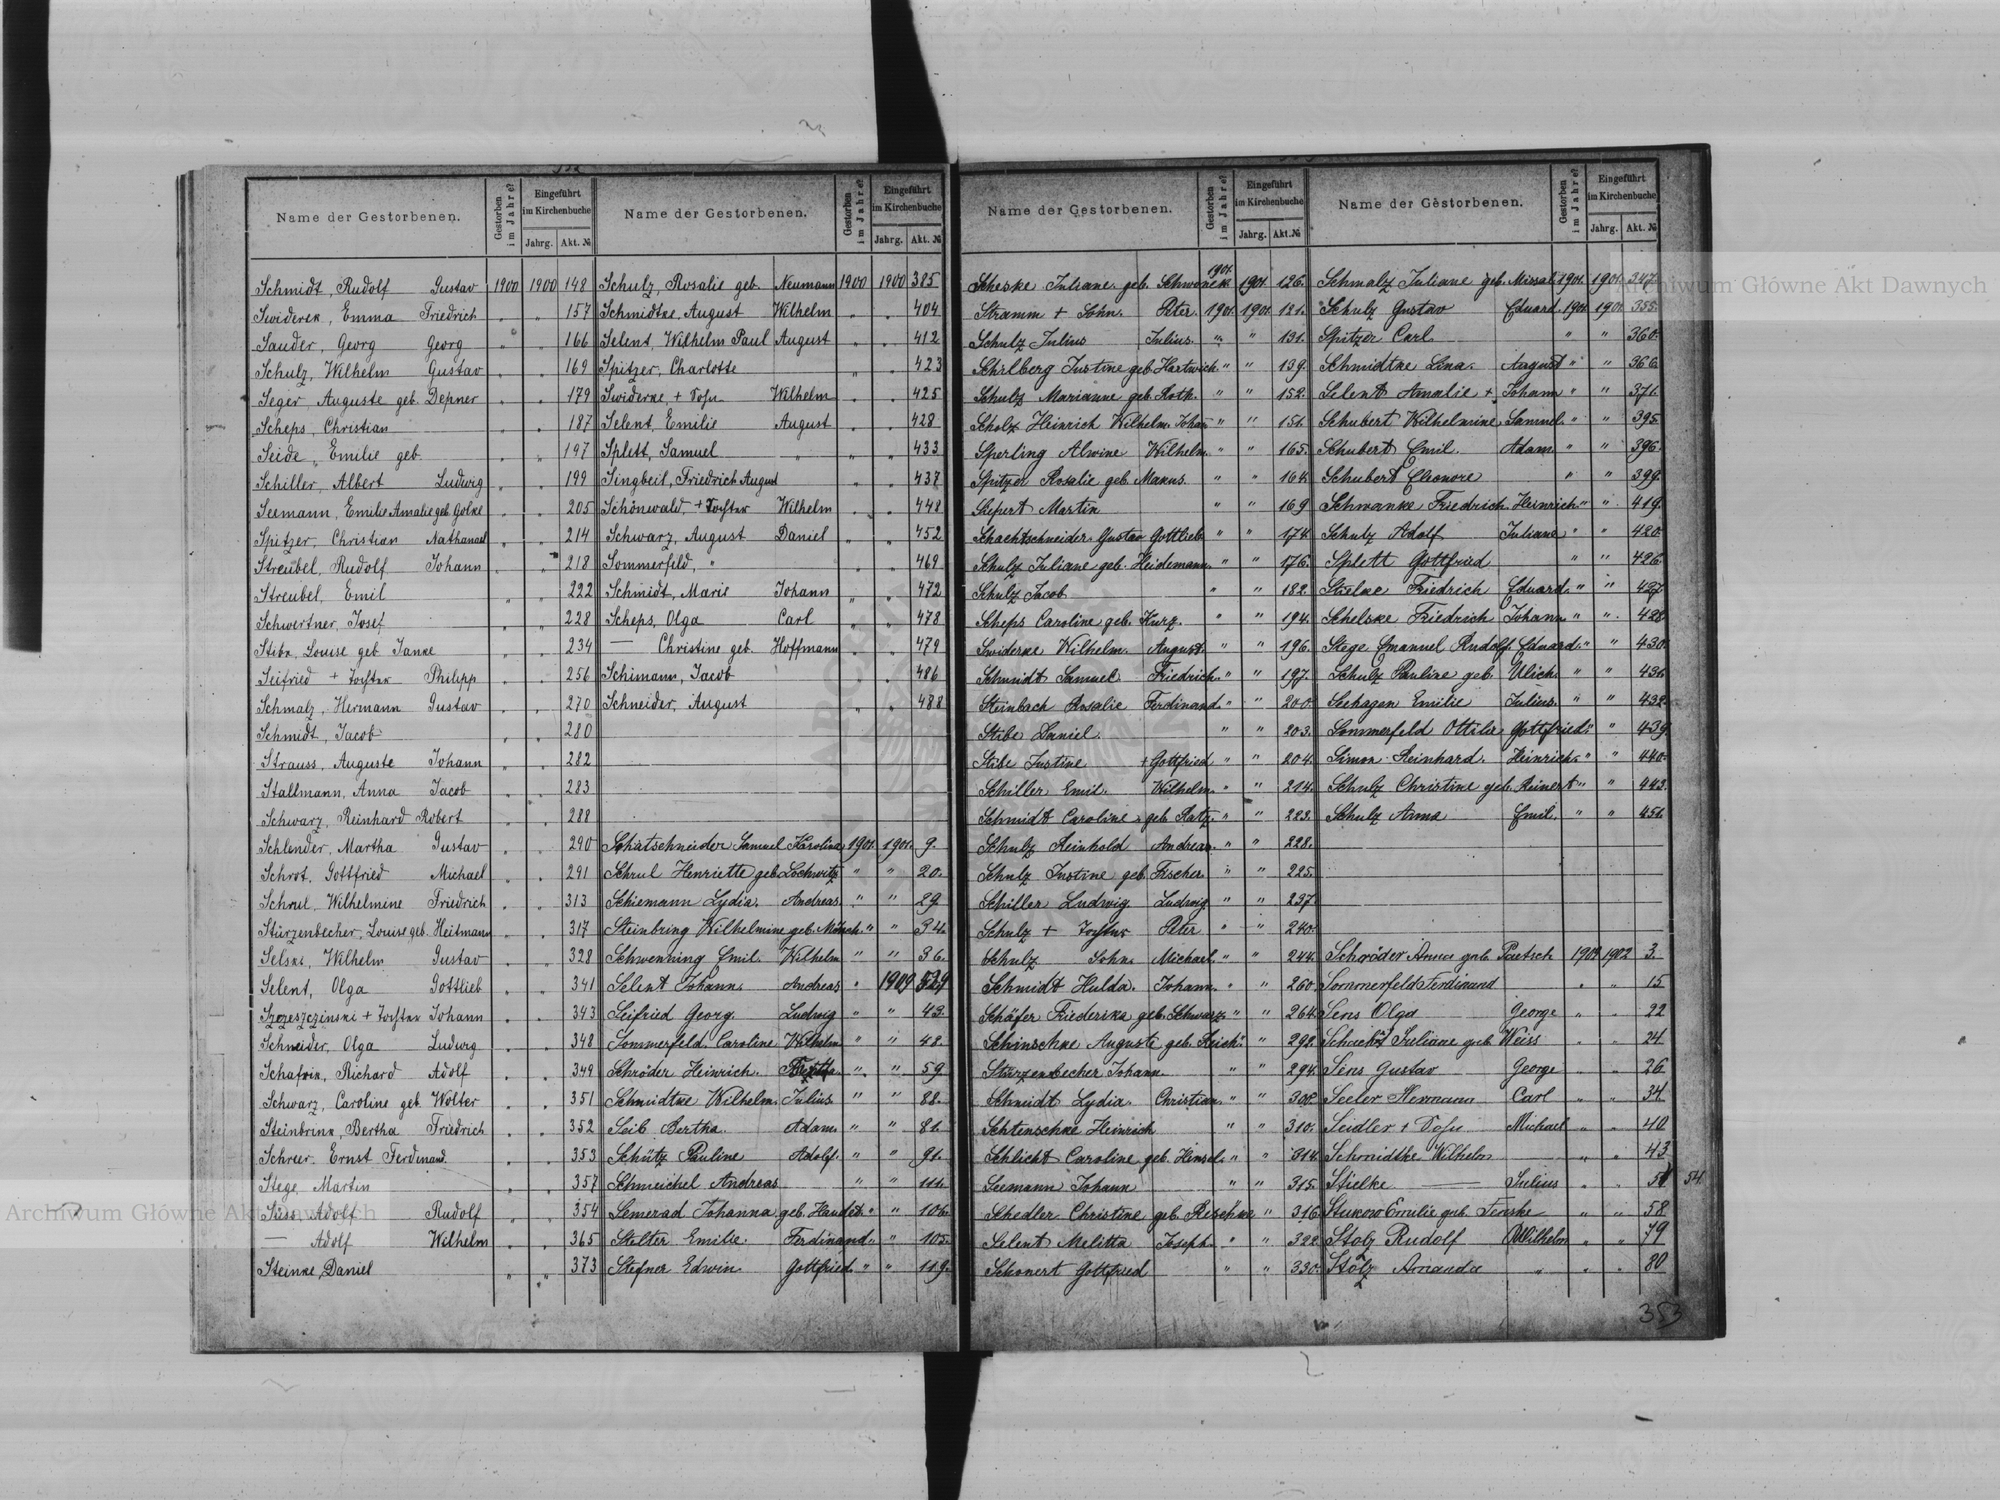 Name der Gestorbenen. Gestorben im Jahre? Eingeführt im Kirchenbuche Jahrg. Akt. №
Schmidt, Rudolf Gustav 1900 1900 148
Swiderek, Emma Friedrich „ „ 157
Sauder, Georg Georg „ „ 166
Schulz, Wilhelm Gustav „ „ 169
Seger Auguste geb. Depner „ „ 179
Scheps, Christian „ „ 187
Seide, Emilie geb. „ „ 197
Schiller, Albert Ludwig „ „ 199
Seemann, Emilie Amalie geb. Golke „ „ 205
Spitzer, Christian Nathanael „ „ 214
Streubel, Rudolf Johann „ „ 218
Streubel, Emil „ „ 222
Schwertner, Josef „ „ 228
Stibe, Louise geb. Janke „ „ 234
Seifried + Tochter Philipp „ „ 256
Schmalz, Hermann Gustav „ „ 270
Schmidt, Jacob „ „ 280
Strauss, Auguste Johann „ „ 282
Stallmann, Anna Jacob „ „ 283
Schwarz, Reinhard Robert „ „ 288
Schlender, Martha Gustav „ „ 290
Schrot, Gottfried Michael „ „ 291
Schrul, Wilhelmine Friedrich „ „ 313
Stürzenbecher, Louise geb. Heitmann „ „ 317
Selski, Wilhelm Gustav „ „ 328
Selent, Olga Gottlieb „ „ 341
Szczeszczinski + Tochter Johann „ „ 343
Schneider, Olga Ludwig „ „ 348
Schafrik, Richard Adolf „ „ 349
Schwarz, Caroline geb. Wolter „ „ 351
Steinbrink, Bertha Friedrich „ „ 352
Schreer, Ernst Ferdinand „ „ 353
Stege, Martin „ „ 357
Süss, Adolf Rudolf „ „ 354
— Adolf Wilhelm „ „ 365
Steinke, Daniel „ „ 373
Name der Gestorbenen. Gestorben im Jahre? Eingeführt im Kirchenbuche Jahrg. Akt. №
Schulz, Rosalie geb. Neumann 1900 1900 385
Schmidtke, August Wilhelm „ „ 404
Selent, Wilhelm Paul August „ „ 412
Spitzer, Charlotte „ „ 423
Swiderke, + Sohn Wilhelm „ „ 425
Selent, Emilie August „ „ 428
Splett, Samuel „ „ „ 433
Singbeil, Friedrich August „ „ 437
Schönwald, + Tochter Wilhelm „ „ 448
Schwarz, August Daniel „ „ 452
Sommerfeld, „ „ „ 469
Schmidt, Marie Johann „ „ 472
Scheps, Olga Carl „ „ 478
— Christine geb. Hoffmann „ „ 479
Schimann, Jacob „ „ 486
Schneider, August „ „ 488
Schatschneider Samuel Karolina 1901. 1901. 9.
Schrul Henriette geb. Lochwitz „ „ 20.
Schiemann Lydia. Andreas. „ „ 29
Steinbring Wilhelmine geb. Mönch „ „ 34.
Schwenning Emil. Wilhelm „ „ 36.
Selent Johann. Andreas „ 1909 529
Seifried Georg. Ludwig „ „ 43.
Sommerfeld. Caroline Wilhelm „ „ 48.
Schröder Heinrich. „ „ 59.
Schmidtke Wilhelm. Julius. „ „ 88.
Seib Bertha. Adam. „ „ 81.
Schütz Pauline Adolf. „ „ 91.
Schmeichel Andreas „ „ 111.
Semerad Johanna geb. „ „ 106.
Stelter Emilie. Ferdinand. „ „ 105.
Stefner Edwin. Gottfried. „ „ 119.
Name der Gestorbenen. Gestorben im Jahre? Eingeführt im Kirchenbuche Jahrg. Akt. №
Scheske Juliane. geb. Schwonek 1901. 1901. 126.
Stramm + Sohn. Peter. 1901. 1901. 121.
Schulz Julius Julius. „ „ 131.
Schilberg Justine geb. Hartwich „ „ 139.
Schulz Marianne geb. Roth. „ „ 152.
Scholz Heinrich Wilhelm. Johan „ „ 151.
Sperling Alwine Wilhelm. „ „ 165.
Spitzer Rosalie geb. Makus. „ „ 164.
Siefert Martin „ „ 169
Schachtschneider Gustav Gottlieb „ „ 174.
Schulz Juliane geb. Heidemann. „ „ 176.
Schulz Jacob „ „ 182.
Scheps Caroline geb. Kurz. „ „ 194.
Swiderke Wilhelm. August. „ „ 196.
Schmidt Samuel. Friedrich. „ „ 197.
Steinbach Rosalie Ferdinand. „ „ 200.
Stibe Daniel. „ „ 203.
Stibe Justine + Gottfried „ „ 204.
Schiller Emil. Wilhelm. „ „ 214.
Schmidt Caroline geb. Ratz. „ „ 223.
Schulz Reinhold Andreas. „ „ 228.
Schulz Justine geb. Fischer. „ „ 225.
Schiller Ludwig Ludwig „ „ 237.
Schulz + Tochter Peter „ „ 240.
Schulz Sohn. Michael. „ „ 244.
Schmidt Hulda. Johann. „ „ 260
Schäfer Friederike geb. Schwarz „ „ 264.
Schinschke Auguste geb. Reich. „ „ 292.
Stürzenbecher Johann. „ „ 294.
Schmidt Lydia. Christian. „ „ 308.
Schtenschke Heinrich „ „ 310.
Schlicht Caroline geb. Hinsel. „ „ 314.
Seemann Johann „ „ 315.
Schedler Christine geb. Reschke „ 316.
Selent Melitta Joseph. „ „ 322.
Schonert Gottfried „ „ 330.
Name der Gestorbenen. Gestorben im Jahre? Eingeführt im Kirchenbuche Jahrg. Akt. №
Schmalz Juliane geb. Missal. 1901. 1901. 347.
Schulz Gustav Eduard. 1901. 1901. 355.
Spitzer Carl. „ „ 360.
Schmidtke Lina. August „ „ 366.
Selent Amalie + Johann „ „ 371.
Schubert Wilhelmine Samuel. „ „ 395.
Schubert Emil. Adam „ „ 396.
Schubert Eleonore „ „ 399.
Schwanke Friedrich. Heinrich. „ „ 419.
Schulz Adolf Juliane „ „ 420.
Splett Gottfried „ „ 426.
Stielke Friedrich Eduard. „ „ 427.
Schelske Friedrich Johann. „ „ 428.
Stege Emanuel Rudolf. Eduard. „ „ 430.
Schulz Pauline geb. Ulich. „ „ 431.
Seehagen Emilie Julius. „ „ 432.
Sommerfeld Ottilie Gottfried. „ „ 439.
Simon Reinhard. Heinrich. „ „ 440.
Schulz Christine geb. Reinert „ „ 443.
Schulz Anna Emil. „ „ 451.
Schröder Anna geb. Paetsch 1902 1902 3.
Sommerfeld Ferdinand „ „ 15
Sens Olga George „ „ 22
Schacht Juliane geb. Weiss „ „ 24
Sens Gustav George „ „ 26
Seeler Hermann Carl „ „ 34
Seidler + Sohn Michael „ „ 40
Schmidtke Wilhelm „ „ 43
Stielke — Julius „ „ 51 54
Stukow Emilie geb. Fenske „ „ 58
Stolz Rudolf Wilhelm „ „ 79
Stolz Amanda „ „ „ 80
353
Archiwum Główne Akt Dawnych
Archiwum Główne Akt Dawnych